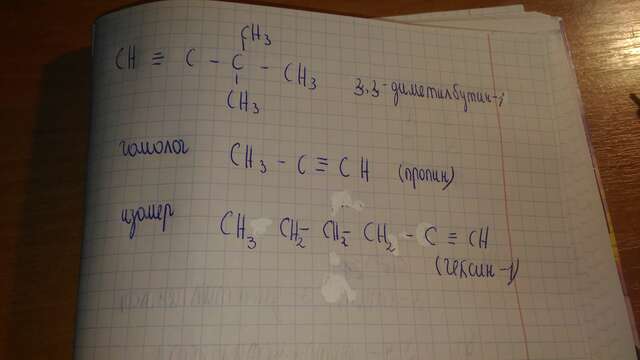 CH3
CH ≡ C - C - CH3
CH3
3,3-диметилбутин-1
гомолог CH3 - C ≡ CH (пропин)
изомер CH3 CH2- CH2- CH2 - C ≡ CH
(гексин-1)